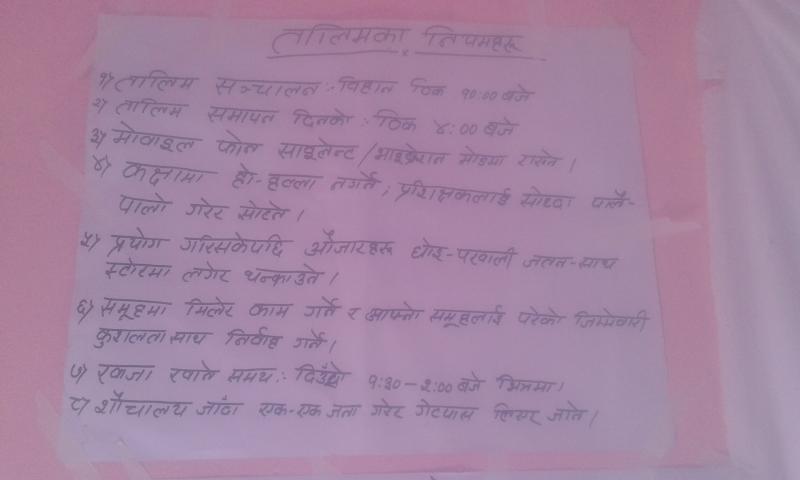 तालिमका नियमहरू
१) तालिम सञ्चालन :- विहान ठिक १०:०० बजे
२) तालिम समापन दिनको : ठिक ४:०० बजे
३) मोवाइल फोन साइलेन्ट / भाइब्रेसन मोडमा राख्ने ।
४) कक्षामा हो-हल्ला नगर्ने ; प्रशिक्षकलाई सोध्दा पालै-
पालो गरेर सोध्ने ।
५) प्रयोग गरिसकेपछि औजारहरू धोइ-पखाली जतन-साथ
स्टोरमा लगेर थन्काउने ।
६) समूहमा मिलेर काम गर्ने र आफ्नो समूहलाई परेको जिम्मेवारी
कुशलता साथ निर्वाह गर्ने ।
७) खाजा खाने समय :- दिउँसो १:३० - २:०० बजे भित्रमा ।
८) शौचालय जाँदा एक-एक जना गरेर गेटपास लिएर जाने ।